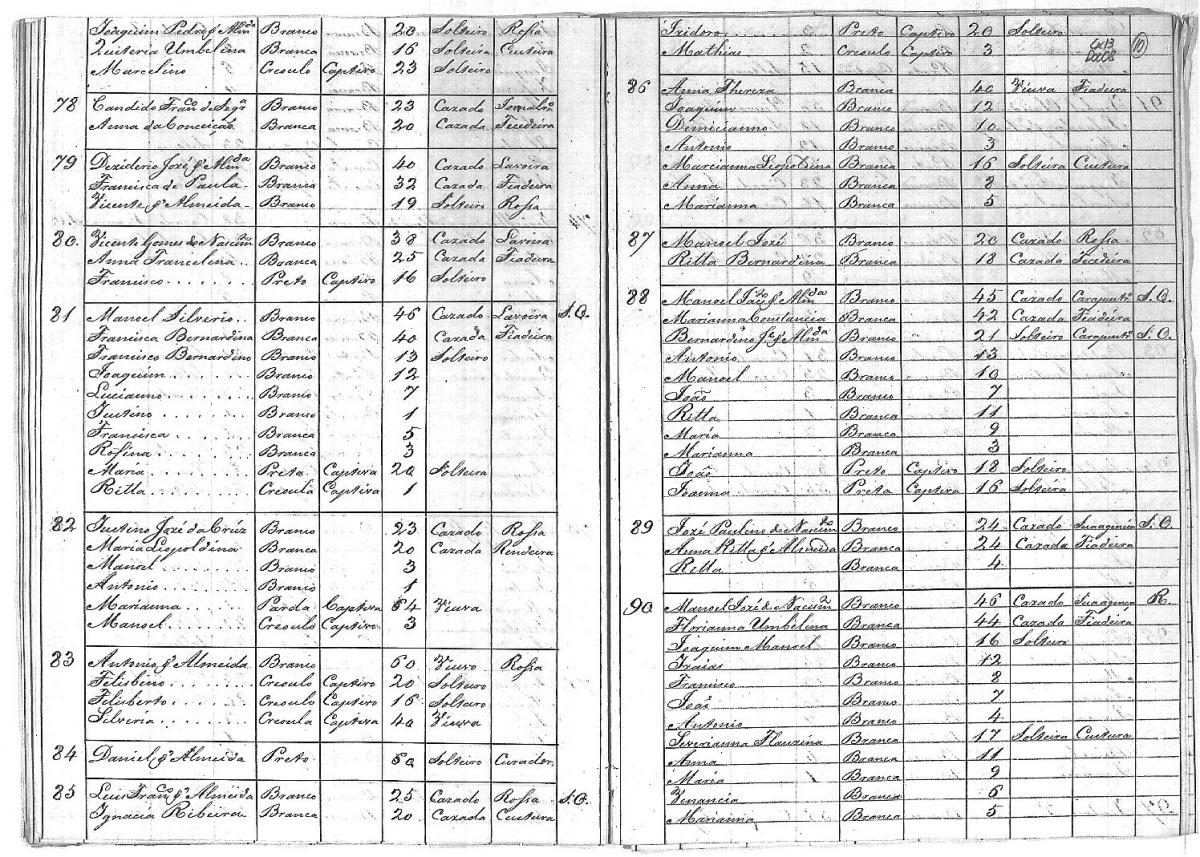 Joaquim Pedro d' Almda Branco 20 Solteiro Rossa
Quiteria Umbelina Branca 16 Solteira Custura
Marcelino Creoulo Captivo 23 Solteiro
78 Candido Franco de Branco 23 Cazado
Anna da Conceição Branca 20 Cazada Tecedeira
79 Deziderio José d' Almda Branco 40 Cazado Lavoira
Francisca de Paula Branca 32 Cazada Fiadeira
Vicente d' Almeida Branco 19 Solteiro Rossa
80 Vicente Gomes do Nascimto Branco 38 Cazado Lavoira
Anna Francelina Branca 25 Cazada Fiadeira
Francisco Preto Captivo 16 Solteiro
81 Manoel Silverio Branco 46 Cazado Lavoira S.Q.
Francisca Bernardina Branca 40 Cazada Fiadeira
Francisco Bernardino Branco 13 Solteiro
Joaquim Branco 12
Lucianno Branco 7
Justino Branco 1
Francisca Branca 5
Rosina Branca 3
Maria Preta Captiva 20 Solteira
Ritta Creoula Captiva 1
82 Justino José da Crúz Branco 23 Cazado Rossa
Maria Leopoldina Branca 20 Cazada Rendeira
Manoel Branco 3
Antonio Branco 1
Marianna Parda Captiva 64 Viuva
Manoel Creoulo Captivo 3
83 Antonio d' Almeida Branco 60 Viuvo Rossa
Felisbino Creoulo Captivo 20 Solteiro
Felisberto Creoulo Captivo 16 Solteiro
Silveria Creoula Captiva 40 Viuva
84 Daniel d' Almeida Preto 50 Solteiro Curador
85 Luis Franco d' Almeida Branco 25 Cazado Rossa S.Q.
Ignacia Ribeira Branca 20 Cazada Custura
Izidoro Preto Captivo 20 Solteiro
Mathias Creoulo Captivo 3
Cx13
Doc08
10
86 Anna Thereza Branca 40 Viuva Fiadeira
Joaquim Branco 12
Demicianno Branco 10
Antonio Branco 3
Marcianna Leopoldina Branca 16 Solteira Custura
Anna Branca 8
Marianna Branca 5
87 Manoel José Branco 20 Cazado Rossa
Ritta Bernardina Branca 18 Cazada Tecedeira
88 Manoel d' Almda Branco 45 Cazado Carapintro S.Q.
Marianna Constancia Branca 42 Cazada Fiadeira
Bernardino Je d' Almda Branco 21 Solteiro Carapintro S.Q.
Antonio Branco 13
Manoel Branco 10
João Branco 7
Ritta Branca 11
Maria Branca 9
Marianna Branca 3
João Preto Captivo 18 Solteiro
Joanna Preta Captiva 16 Solteira
89 José Paulino do Nascimto Branco 24 Cazado S.Q.
Anna Ritta d' Almeida Branca 24 Cazada Fiadeira
Ritta Branca 4
90 Manoel José do Nacimto Branco 46 Cazado R.
Florianna Umbelina Branca 44 Cazada Fiadeira
Joaquim Manoel Branco 16 Solteiro
Izaias Branco 12
Francisco Branco 8
João Branco 7
Antonio Branco 4
Severianna Flauzina Branca 17 Solteira Custura
Anna Branca 11
Maria Branca 9
Venancia Branca 6
Marianna Branca 5